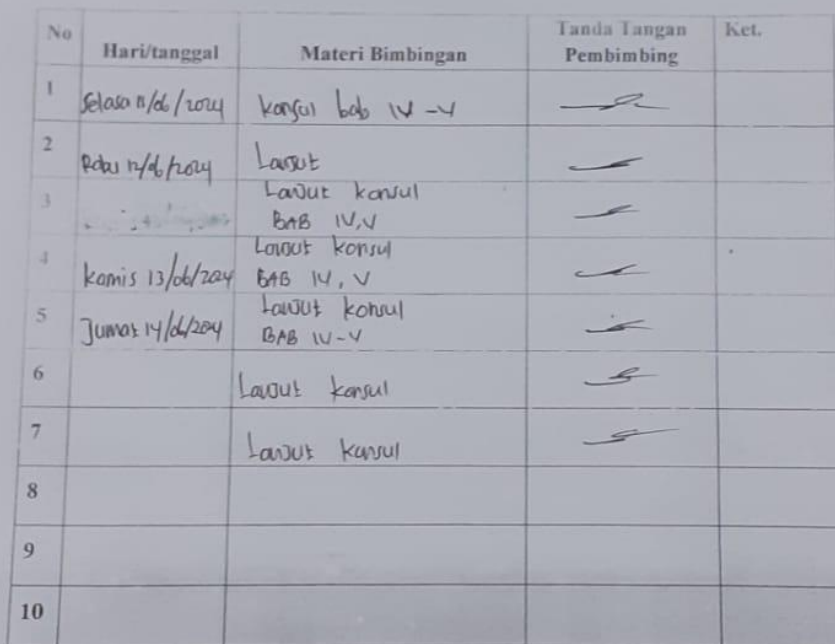 No Hari/tanggal Materi Bimbingan Tanda Tangan Pembimbing Ket.
1 Selasa 11/06/2024 Konsul bab IV-V
2 Rabu 12/06/2024 Lanjut
3 Lanjut konsul
BAB IV,V
4 Kamis 13/06/2024 Lanjut konsul
BAB IV, V
5 Jumat 14/06/2024 Lanjut konsul
BAB IV-V
6 Lanjut konsul
7 Lanjut konsul
8
9
10